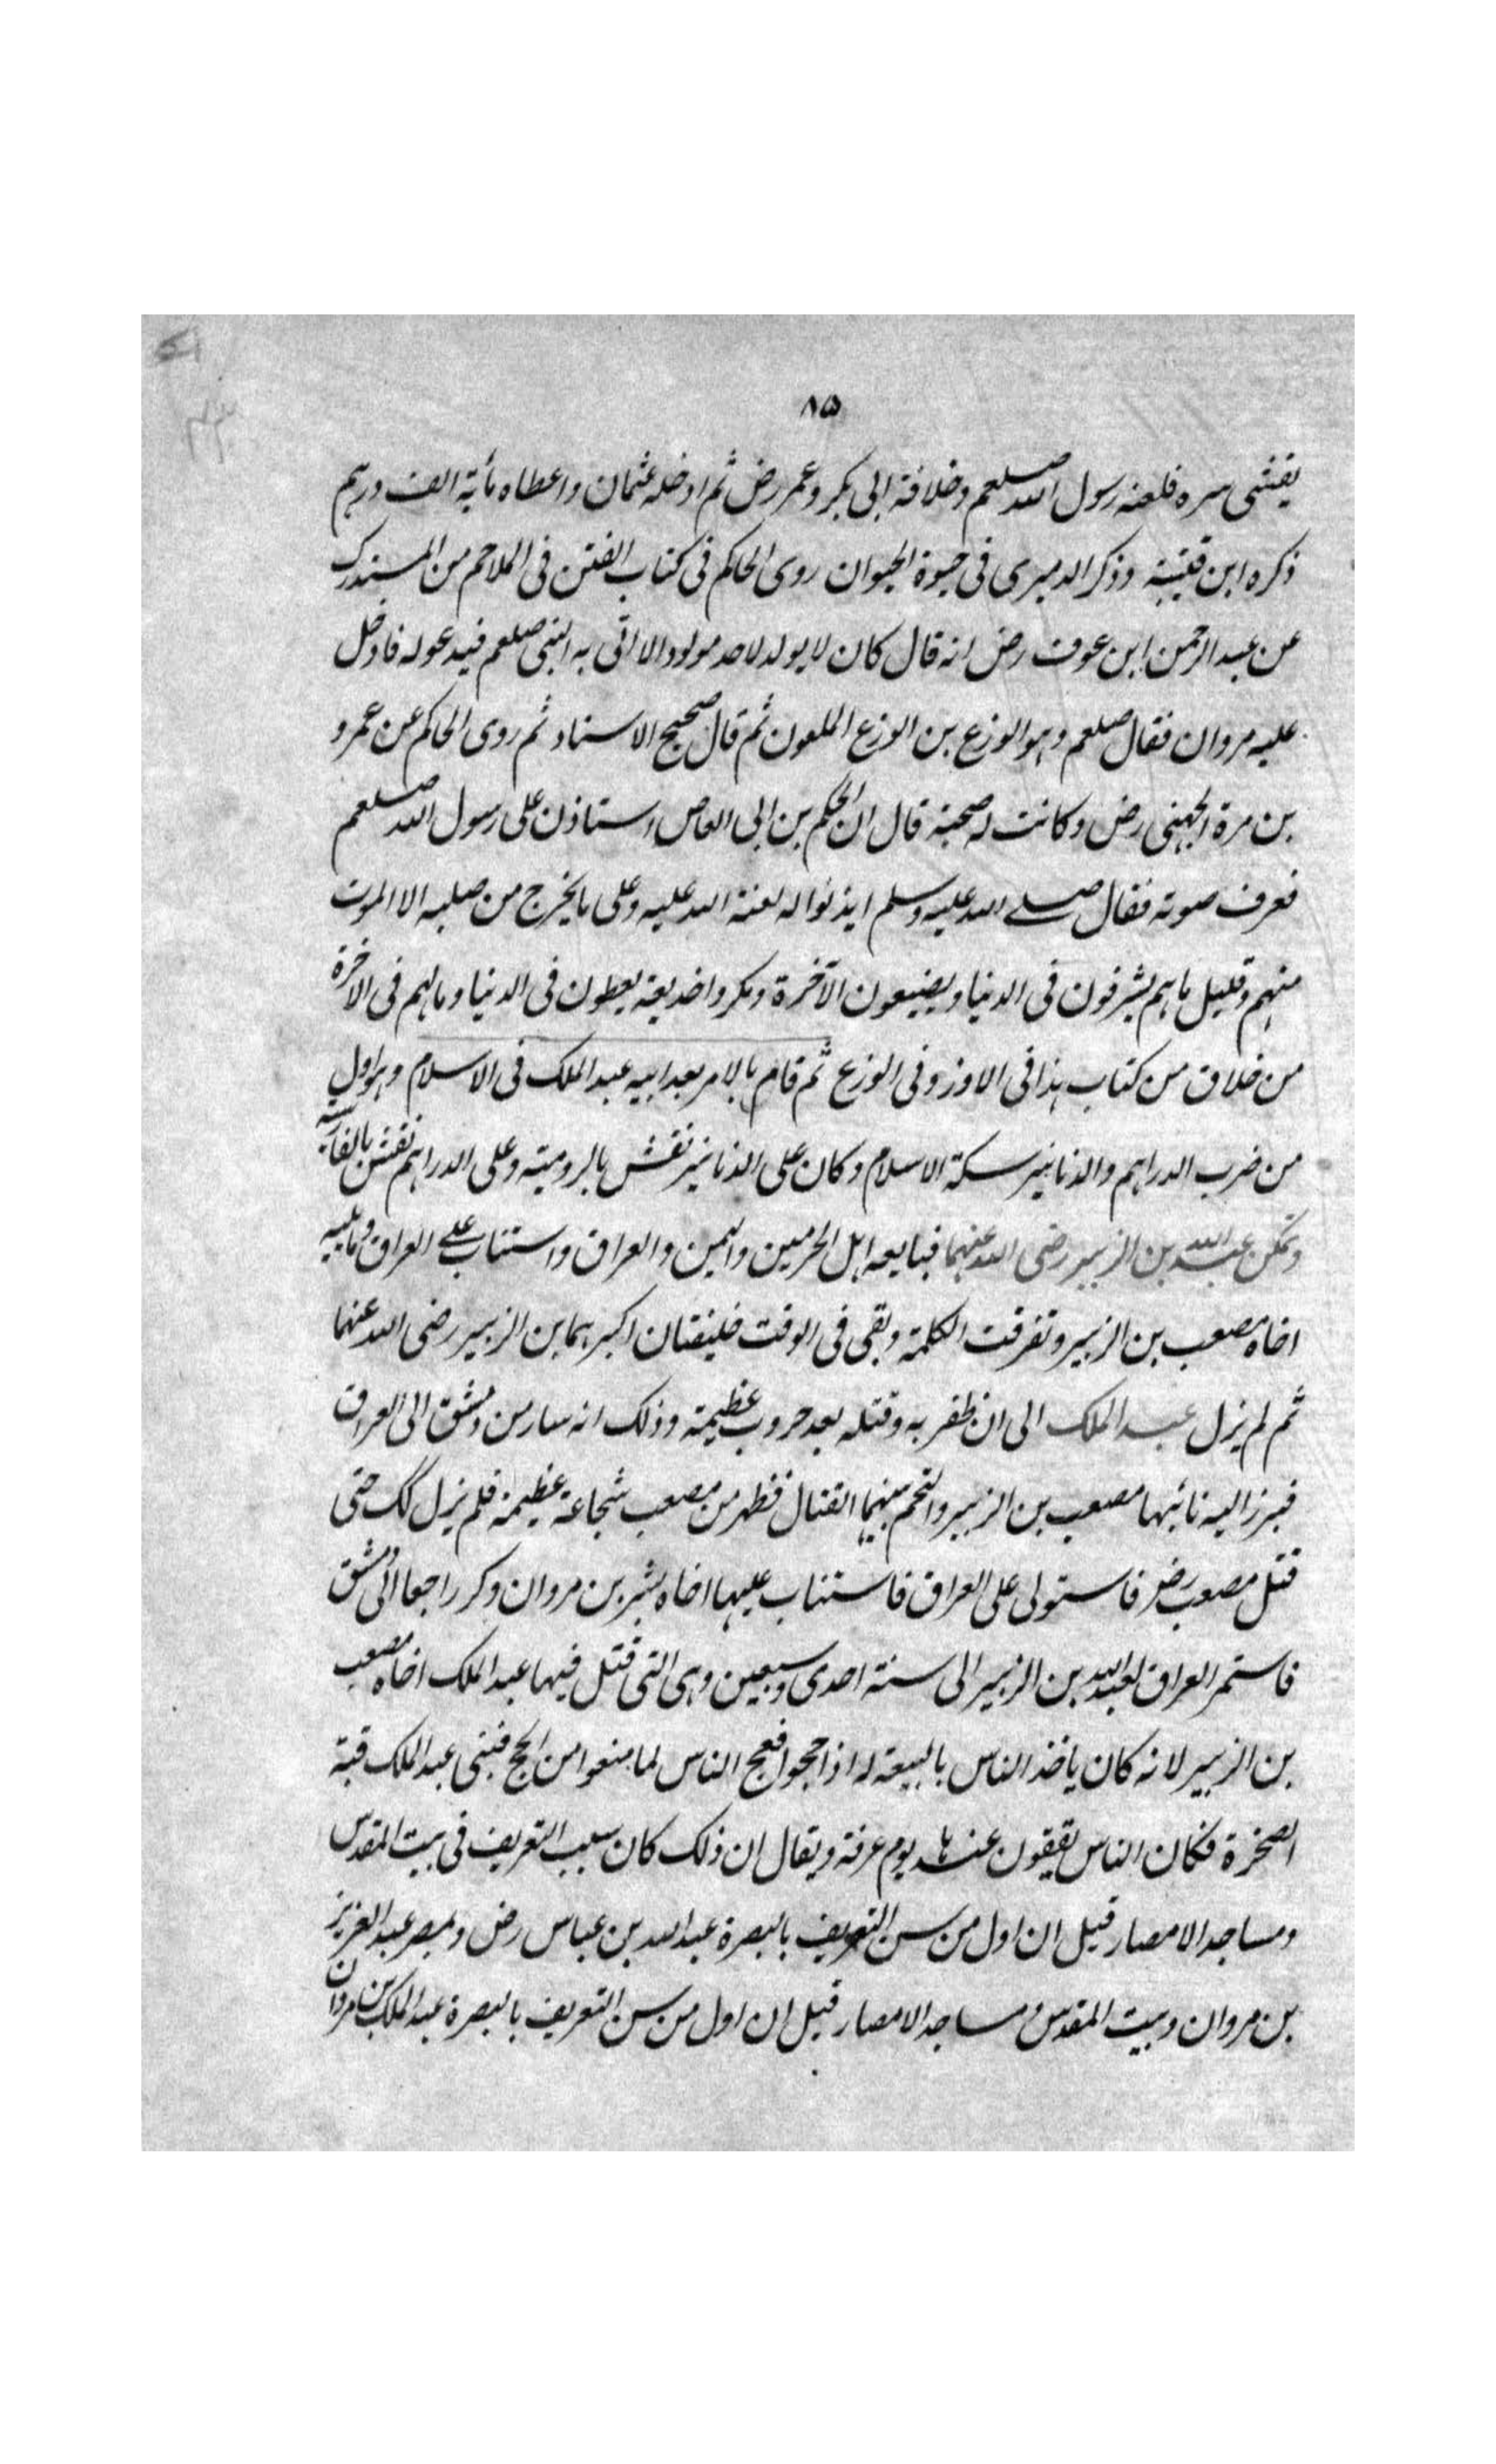 ۸۵
يفشى سره فلعنه رسول الله صلعم وخلافة ابى بكر وعمر رض ثم ادخله عثمان واعطاه مأية الف درهم
ذكره ابن قتيبة وذكر الدميرى فى حيوة الحيوان روى الحاكم فى كتاب الفتن فى الملاحم من المستدرك
عن عبد الرحمن ابن عوف رض انه قال كان لا يولد لاحد مولود الا اتى به النبى صلعم فيدعوله فادخل
عليه مروان فقال صلعم وهو الوزع بن الوزع الملعون ثم قال صحيح الاسناد ثم روى الحاكم عن عمرو
بن مرة الجهنى رض وكانت له صحبة قال ان الحكم بن ابى العاص استاذن على رسول الله صلعم
فعرف صوته فقال صلے الله عليه وسلم ايذنوا له لعنة الله عليه وعلى ما يخرج من صلبه الا الموت
منهم وقليل ما هم يشرفون فى الدنيا ويضيعون الآخرة ومكر واخديعة يعطون فى الدنيا وما لهم فى الاخرة
من خلاق من كتاب هذا فى الاوز وفى الوزع ثم قام بالامر بعد ابيه عبد الملك فى الاسلام وهو اول
من ضرب الدراهم والدنانير سكة الاسلام وكان على الدنانير نقش بالرومية وعلى الدراهم نقش بالفارسية
وتمكن عبد الله بن الزبير رضى الله عنهما فبايعه اهل الحرمين واليمن والعراق واستناب علے العراق وما يليه
اخاه مصعب بن الزبير وتفرقت الكلمة وبقى فى الوقت خليفتان اكبرهما بن الزبير رضى الله عنهما
ثم لم يزل عبد الملك الى ان ظفر به وقتله بعد حروب عظيمة وذلك انه سار من دمشق الى العراق
فبرز اليه نائبها مصعب بن الزبير والتحم بينهما القتال فظهر من مصعب شجاعة عظيمة فلم يزل كك حتى
قتل مصعب رض فاستولى على العراق فاستناب عليها اخاه بشر بن مروان وكر راجعا الى دمشق
فاستمر العراق لعبد الله بن الزبير الى سنة احدى وسبعين وهى التى قتل فيها عبد الملك اخاه مصعب
بن الزبير لانه كان ياخذ الناس بالبيعة له اذا حجوا فعج الناس لما منعوا من الحج فبنى عبد الملك قبة
الصخرة فكان الناس يقفون عندها يوم عرفة ويقال ان ذلك كان سبب التعريف فى بيت المقدس
ومساجد الامصار قيل ان اول من سن التعريف بالبصرة عبد الله بن عباس رض وبمصر عبد العزيز
بن مروان وبيت المقدس ومساجد الامصار قيل ان اول من سن التعريف بالبصرة عبد الملك بن مروان